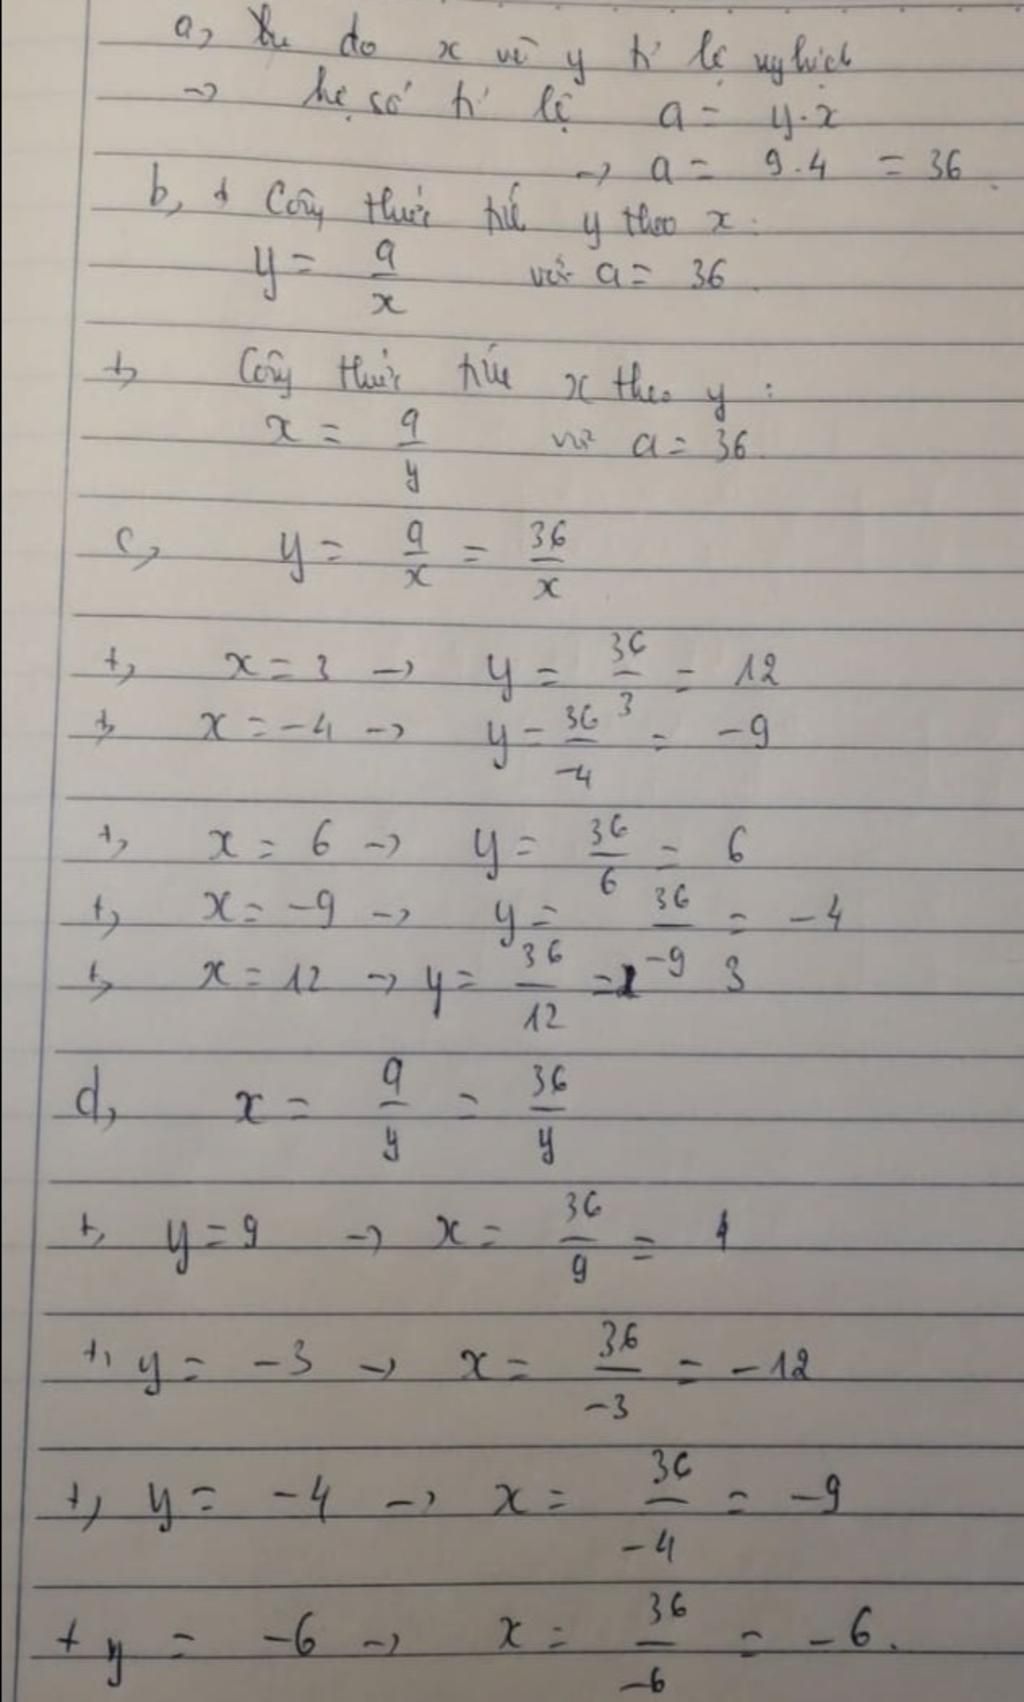 a, do x và y tỉ lệ nghịch
→ hệ số tỉ lệ a = y.x
→ a = 9.4 = 36.
b, + Công thức tiú y theo x :
y = a/x với a = 36.
+, Công thức tiú x theo y :
x = a/y với a = 36.
c, y = a/x = 36/x
+, x = 3 → y = 36/3 = 12
+, x = -4 → y = 36/-4 = -9
+, x = 6 → y = 36/6 = 6
+, x = -9 → y = 36/-9 = -4
+, x = 12 → y = 36/12 = 3
d, x = a/y = 36/y
+, y = 9 → x = 36/9 = 4
+, y = -3 → x = 36/-3 = -12
+, y = -4 → x = 36/-4 = -9
+ y = -6 → x = 36/-6 = -6.